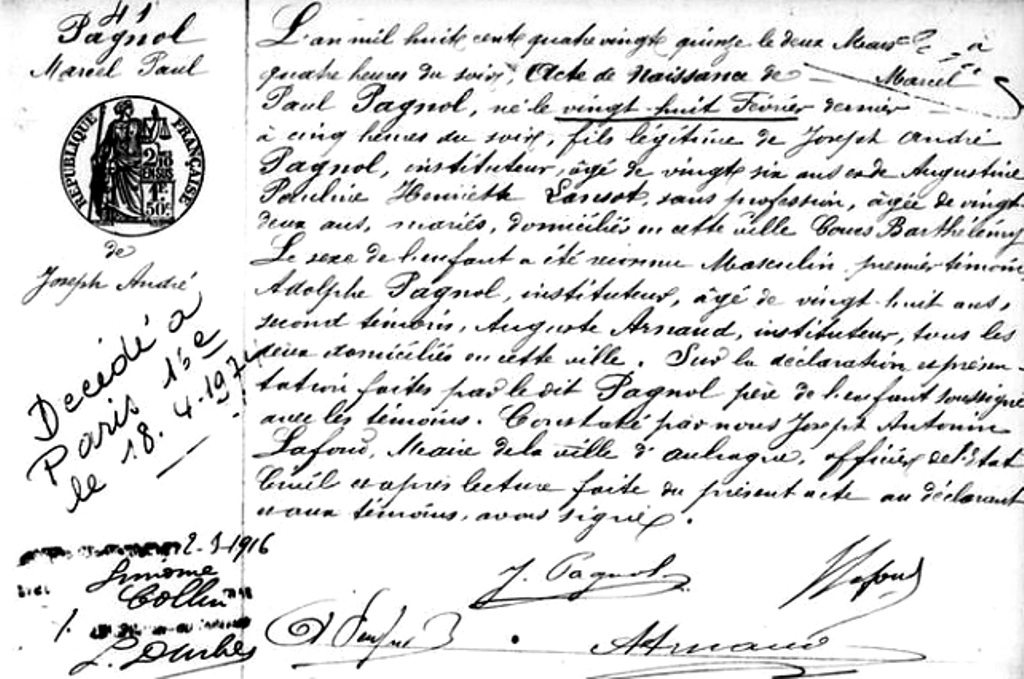 41
Pagnol
Marcel Paul
RÉPUBLIQUE FRANÇAISE
2/10
EN SUS
1F
50c
de
Joseph André
Decédé a
Paris 16e
le 18.4.1974
2-3-1916
Simone
Collin
L'an mil huit cent quatre vingt quinze le deux Mars à
quatre heures du soir, Acte de Naissance de Marcel
Paul Pagnol, né le vingt huit Février dernier
à cinq heures du soir, fils légitime de Joseph André
Pagnol, instituteur, âgé de vingt six ans et de Augustine
Pauline Henriette Lansot, sans profession, âgée de vingt-
deux ans, mariés, domiciliés en cette ville Cours Barthélémy
Le sexe de l'enfant a été reconnu Masculin. premier témoin
Adolphe Pagnol, instituteur, âgé de vingt huit ans,
second témoin, Auguste Arnaud, instituteur, tous les
deux domiciliés en cette ville. Sur la déclaration et présen-
tation faites par le dit Pagnol père de l'enfant soussigné
avec les témoins. Constaté par nous Joseph Antonin
Lafond, Maire de la ville d'aubagne, officier de l'Etat
Civil et après lecture faite du présent acte au déclarant
et aux témoins, avons signé.
J. Pagnol
Lafond
AArnaud